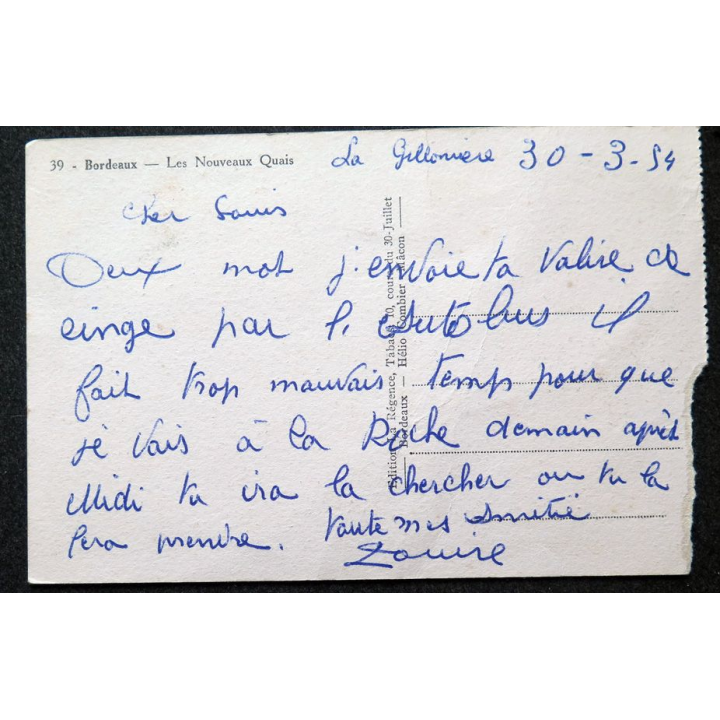 39 - Bordeaux — Les Nouveaux Quais
La 30-3-54
Cher
Deux mot j'envoie ta Valise de
einge par l'Autobus il
fait trop mauvais temps pour que
je vais à la Roche demain après
Midi tu ira la chercher ou tu la
fera prendre. toute mes Amitié
Louise
Édition La Régence, Tabac, 10, cours du 30-Juillet
Bordeaux — Hélio Combier Mâcon